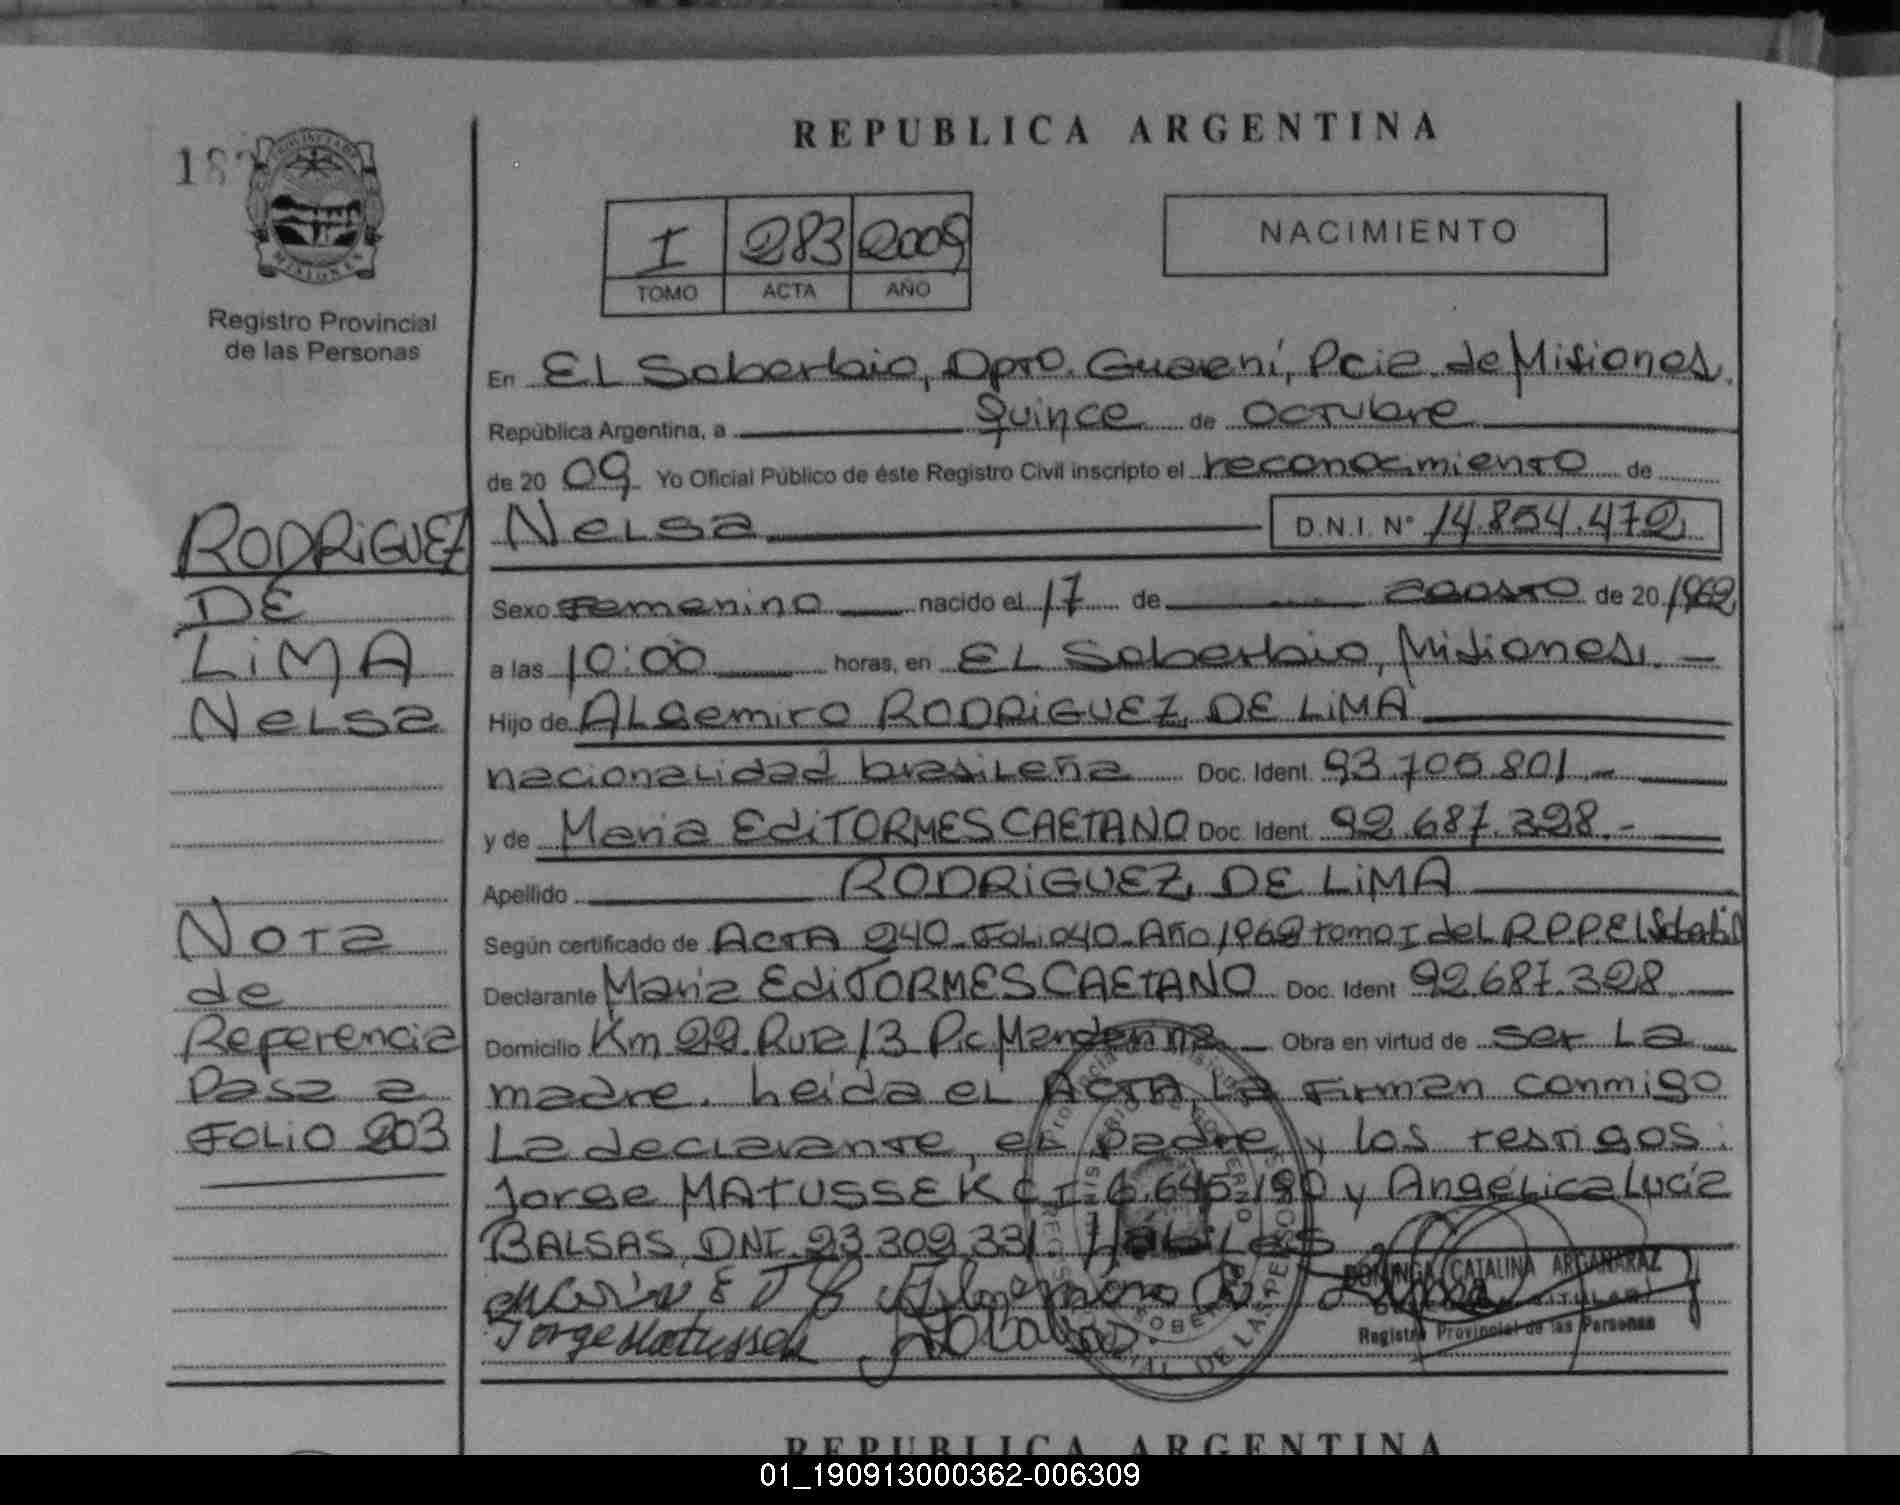 REPUBLICA ARGENTINA
PROVINCIA DE
MISIONES
Registro Provincial
de las Personas
I 283 2009
TOMO ACTA AÑO
NACIMIENTO
En EL Soberbio, Dpto. Guaraní, Pcia. de Misiones.
República Argentina, a quince de octubre
de 20 09 Yo Oficial Público de éste Registro Civil inscripto el reconocimiento de
RODRIGUEZ
DE
LIMA
NELSA
Nelsa D.N.I. N° 14.854.472
Sexo Femenino nacido el 17 de agosto de 20 1962
a las 10:00 horas, en EL Soberbio, Misiones.
Hijo de ALGEMIRO RODRIGUEZ DE LIMA
nacionalidad brasileña Doc. Ident. 93.705.801.-
y de Maria Edi TORMES CAETANO Doc. Ident. 92.687.328.-
Apellido RODRIGUEZ DE LIMA
Según certificado de ACTA 240 - Folio 40 - Año 1962 tomo I del R.P.P. El Soberbio
Declarante Maria Edi TORMES CAETANO Doc. Ident 92.687.328
Domicilio Km 22 Ruta 13 Pic. Obra en virtud de ser La
madre. Leida el ACTA, La Firman conmigo
La declarante, el padre y los testigos:
Jorge MATUSSEK C I 6.645.190 y Angélica Lucía
BALSAS DNI 23 302 331. Hábiles
Nota
de
Referencia
Pasa a
FOLIO 203
Jorge Matussek
DOMINGA CATALINA ARGAÑARAZ
TITULAR
Registro Provincial de las Personas
REPUBLICA ARGENTINA
01_190913000362-006309